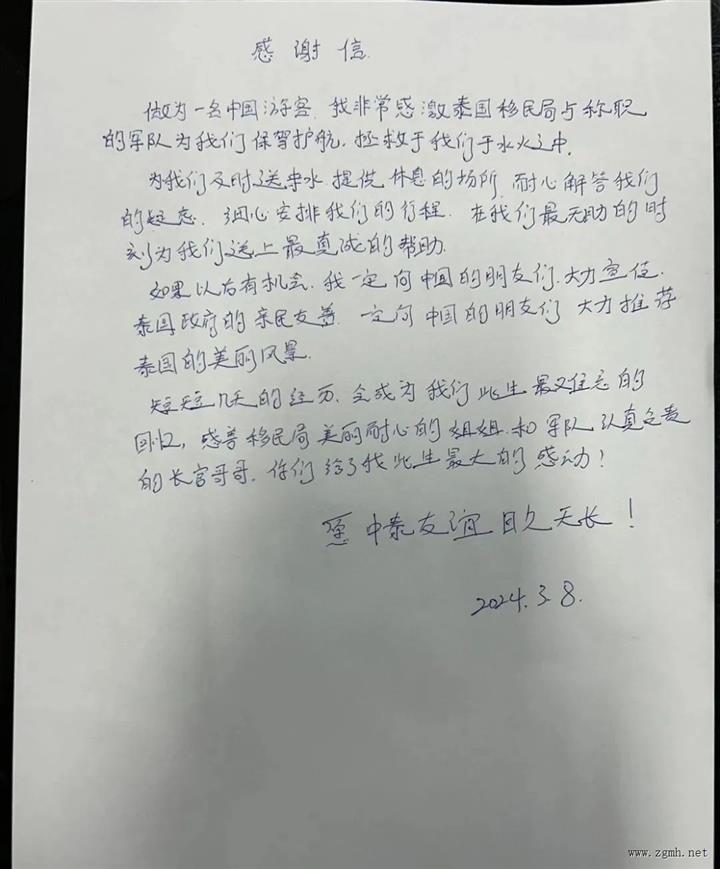 感谢信
做为一名中国游客.我非常感激泰国移民局与称职
的军队为我们保驾护航.拯救于我们于水火之中.
为我们及时送来水.提供休息的场所.耐心解答我们
的疑惑.细心安排我们的行程.在我们最无助的时
刻为我们送上最真诚的帮助.
如果以后有机会.我一定向中国的朋友们.大力宣传.
泰国政府的亲民友善.一定向中国的朋友们大力推荐
泰国的美丽风景.
短短几天的经历.会成为我们此生最难忘的
回忆,感普移民局美丽耐心的姐姐.和军队认真负责
的长官哥哥.你们给了我此生最大的感动!
愿中泰友谊日久天长!
2024.3.8.
www.zgmh.net